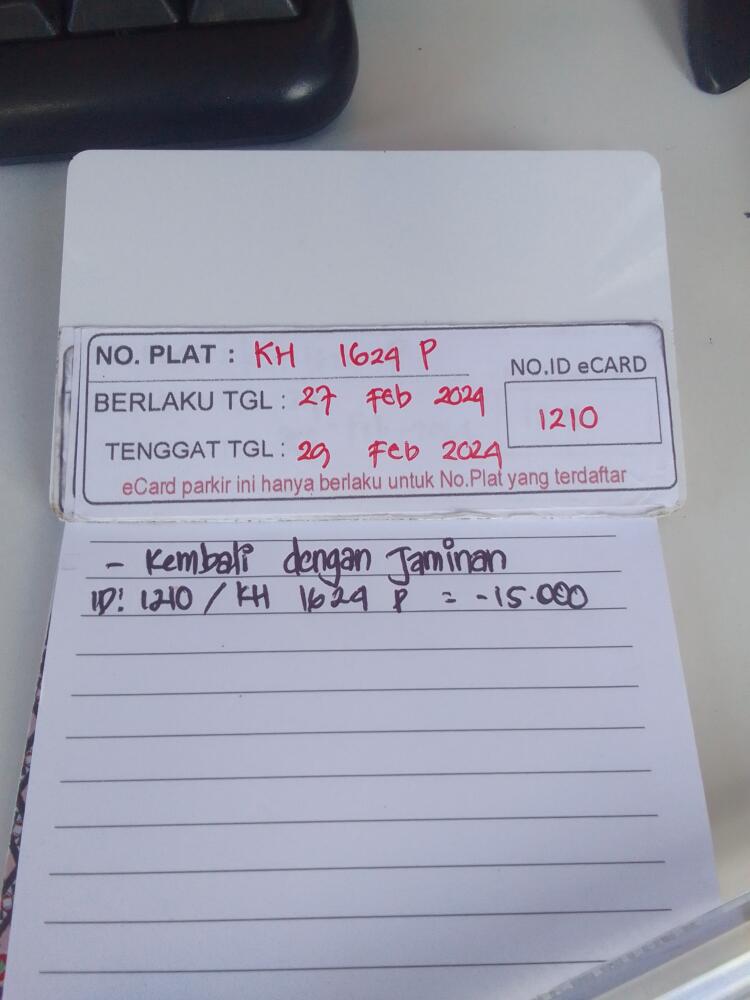 NO. PLAT : KH 1624 P
NO.ID eCARD
BERLAKU TGL : 27 Feb 2024
1210
TENGGAT TGL : 29 Feb 2024
eCard parkir ini hanya berlaku untuk No.Plat yang terdaftar
- Kembali dengan Jaminan
ID: 1210 / KH 1624 P = -15.000